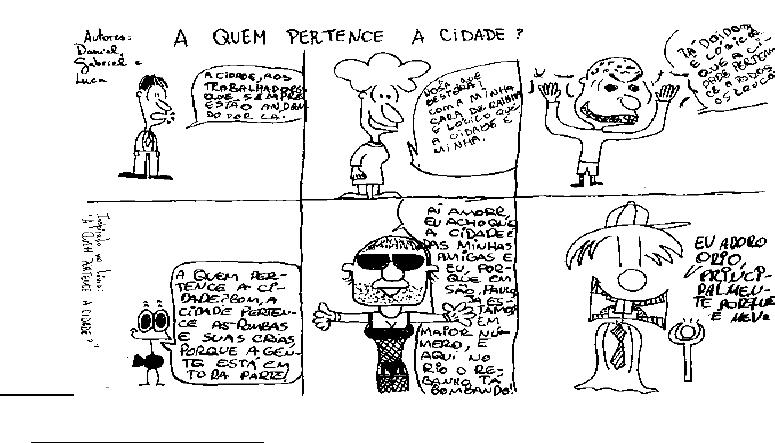 Autores:
Daniel,
Gabriel e
Luca
A QUEM PERTENCE A CIDADE?
A CIDADE, AOS
TRABALHADORES
QUE SEMPRE
ESTÃO ANDAN
DO POR LÁ.
QUE
BESTEIRA!
COM A MINHA
CARA DE RAINHA
É LÓGICO QUE
A CIDADE É
MINHA.
TÁ DOIDO,
É LÓGICO
QUE A CI-
DADE PERTEN-
CE A TODOS
OS LOUCOS
A QUEM PER-
TENCE A CI-
DADE? BOM, A
CIDADE PERTEN-
CE AS POMBAS
E SUAS CRIAS
PORQUE A GEN-
TE ESTÁ EM
TODA PARTE!
AI AMORE,
EU ACHO QUE
A CIDADE É
DAS MINHAS
AMIGAS E
EU, POR-
QUE EM
SÃO PAULO
JÁ ES-
TAMOS
EM
MAIOR NÚ-
MERO, E
AQUI NO
RIO O RE-
BANHO TÁ
BOMBANDO!!
EU ADORO
O RIO,
PRINCI-
PALMEN-
TE PORQUE
É MEU.
"A QUEM PERTENCE A CIDADE?"